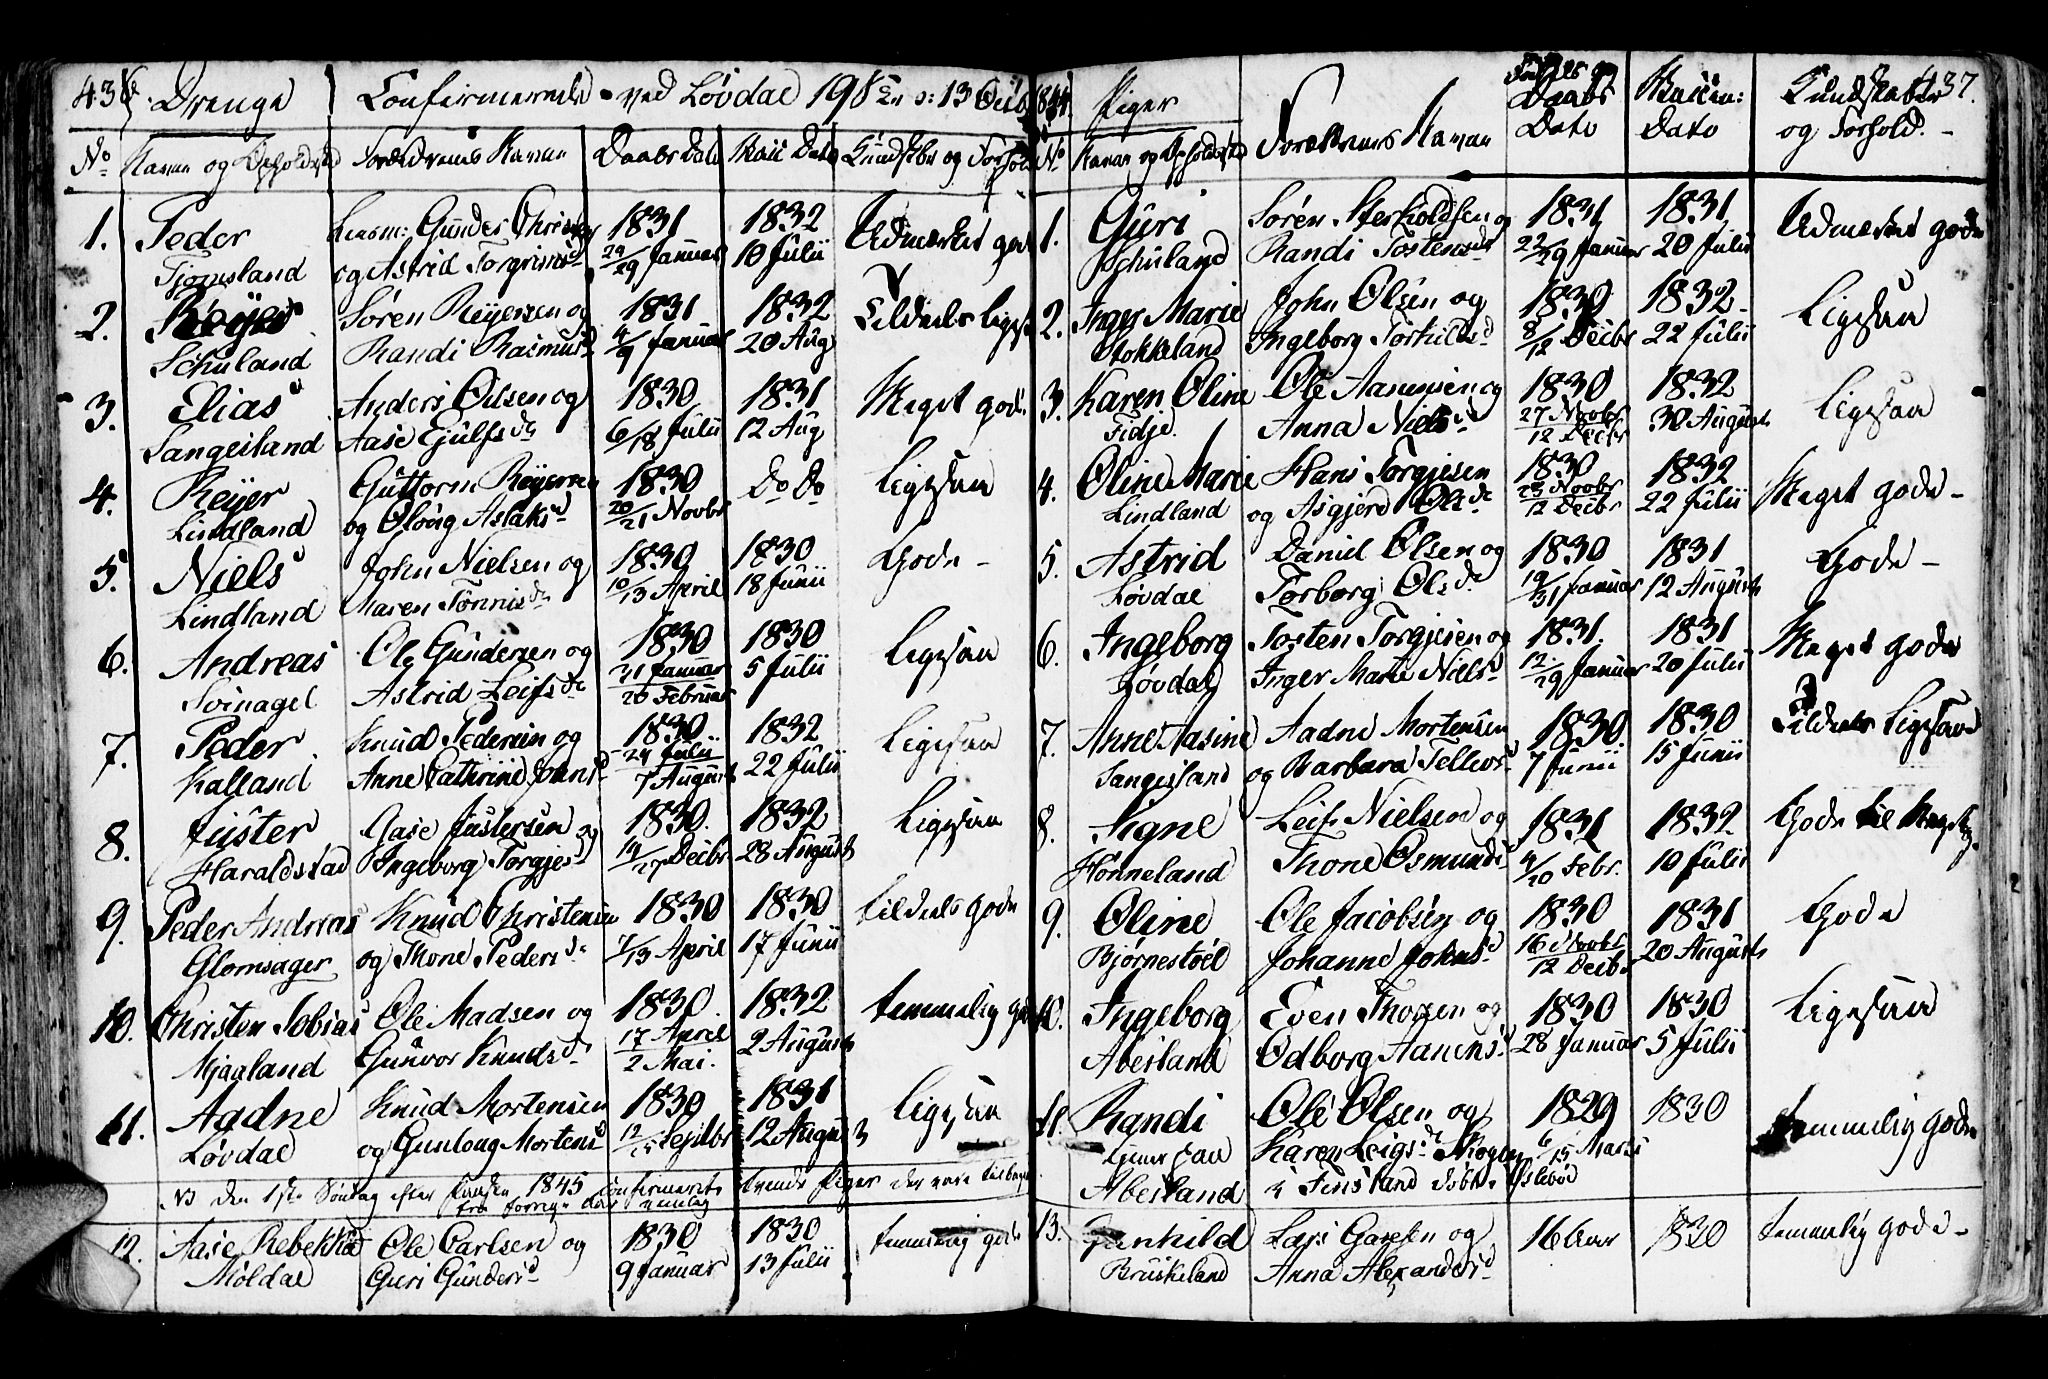 436. Drenge Confirmerede ved Løvdal 19de S: 13 Octb 1844.
No Navn og Opholdsted Forældrenes Navne Daabs Dato Vacc Dato Kundskber og Forhold
1. Peder Lensm: Gunder Christens 1831 1832 Udmærket gode
Tjomsland og Astrid Torgrimsd 24/29 Januar 10 Julii
2. Reyer Søren Reyersen og 1831 1832 Tildeels Ligesaa
Schuland Randi Rasmusd 4/9 Januar 20 Aug
3. Elias Anders Olsen og 1830 1831 Meget gode
Langesland Aase Ejulfsdr 6/18 Julii 12 Aug
4. Reyer Guttorm Reyersen 1830 Do Do Ligesaa
Lindland og Oloug Aslaksd 20/21 Novbr
5. Niels John Nielsen og 1830 1830 Gode -
Lindland Maren Tønnisdr 10/13 April 18 Junii
6. Andreas Ole Gundersen og 1830 1830 Ligesaa
Svinagel Astrid Leifsdr 21 Januar/20 Februar 5 Julii
7. Peder Knud Pedersen og 1830 1832 Ligesaa
Kalland Anne Cathrine Johnsd 24 Julii/7 August 22 Julii
8. Juster Aase Justersen og 1830. 1832 Ligesaa
Haraldstad Ingeborg Torgjesd 19/27 Decbr 28 August
9. Peder Andreas Knud Christensen 1830 1830 tildeels gode
Glomsager og Thone Pedersdr /13 April 17 Junii
10. Christen Tobias Ole Madsen og 1830. 1832 temmelig gode
Mjaaland Gunvor Knudsdr 17 April/2 Mai. 2 August
11. Aadne Knud Mortensen 1830 1831 Ligesaa
Løvdal og Gunloug Mortensd 12/ Septbr 12 August
NB den 1ste Søndag efter Paasken 1845 Confirmerets trende Piger der vare tilbage
fra forrige Aar nemlig
12. Aase Rebekka Ole Carlsen og 1830 1830 temmelig gode
Møldal Guri Gundersd 9 Januar 13 Julii
Piger Forældrenes Navne Fødsels og Daabs Dato Vaccin: Dato Kundskaber og Forhold. - 437.
No Navn og Opholdsted
1. Guri Søren Sterkoldsen og 1831 1831 Udmærket gode
Schuland Randi Tostensdr 22/29 Januar 20 Julii
2. Inger Marie John Olsen og 1830 1832 Ligesaa
Stokkeland Ingeborg Torkildsd 8/12 Decbr 22 Julii
3. Karen Oline Ole Aasmunsen og 1830 1832 Ligesaa
Fidje. Anna Nielsd 27 Novbr/12 Decbr 30 August
4. Oline Marie Hans Torgjesen 1830 1832 Meget gode -
Lindland og Asgjerd Olsdr 23 Novbr/12 Decbr 22 Julii
5. Astrid Daniel Olsen og 1830 1831 Gode -
Løvdal Torborg Olsdr 19/31 Januar 12 August
6. Ingeborg Tosten Torgjesen og 1831. 1831 Meget gode
Løvdal Inger Marie Nielsd 12/29 Januar 20 Julii
7. Anne Aasine Aadne Mortensen 1830 1830 Tildeels Ligesaa
Langesland og Barbara Tellevsd 7 Junii 15 Junii
8. Signe Leif Nielsen og 1831 1832 Gode til Meget g.
Hønneland Thone Osmundsd 4/20 Febr. 10 Julii
9. Oline Ole Jacobsen og 1830 1831 Gode
Bjørnestøel Johanne Johnsd 16 Novbr/12 Decbr 20 August
10. Ingeborg Even Thorsen og 1830 1830 Ligesaa
Abesland Odborg Aanensd 28 Januar 5 Julii
11. Randi Ole Olsen og 1829 1830 temmelig gode
Abesland Karen Leigsdr 6/15 Marts
i Finsland
13. Gunhild Lars Gare en og 16 Aar 1830 temmelig gode -
Bruskeland Anna Alexandersd